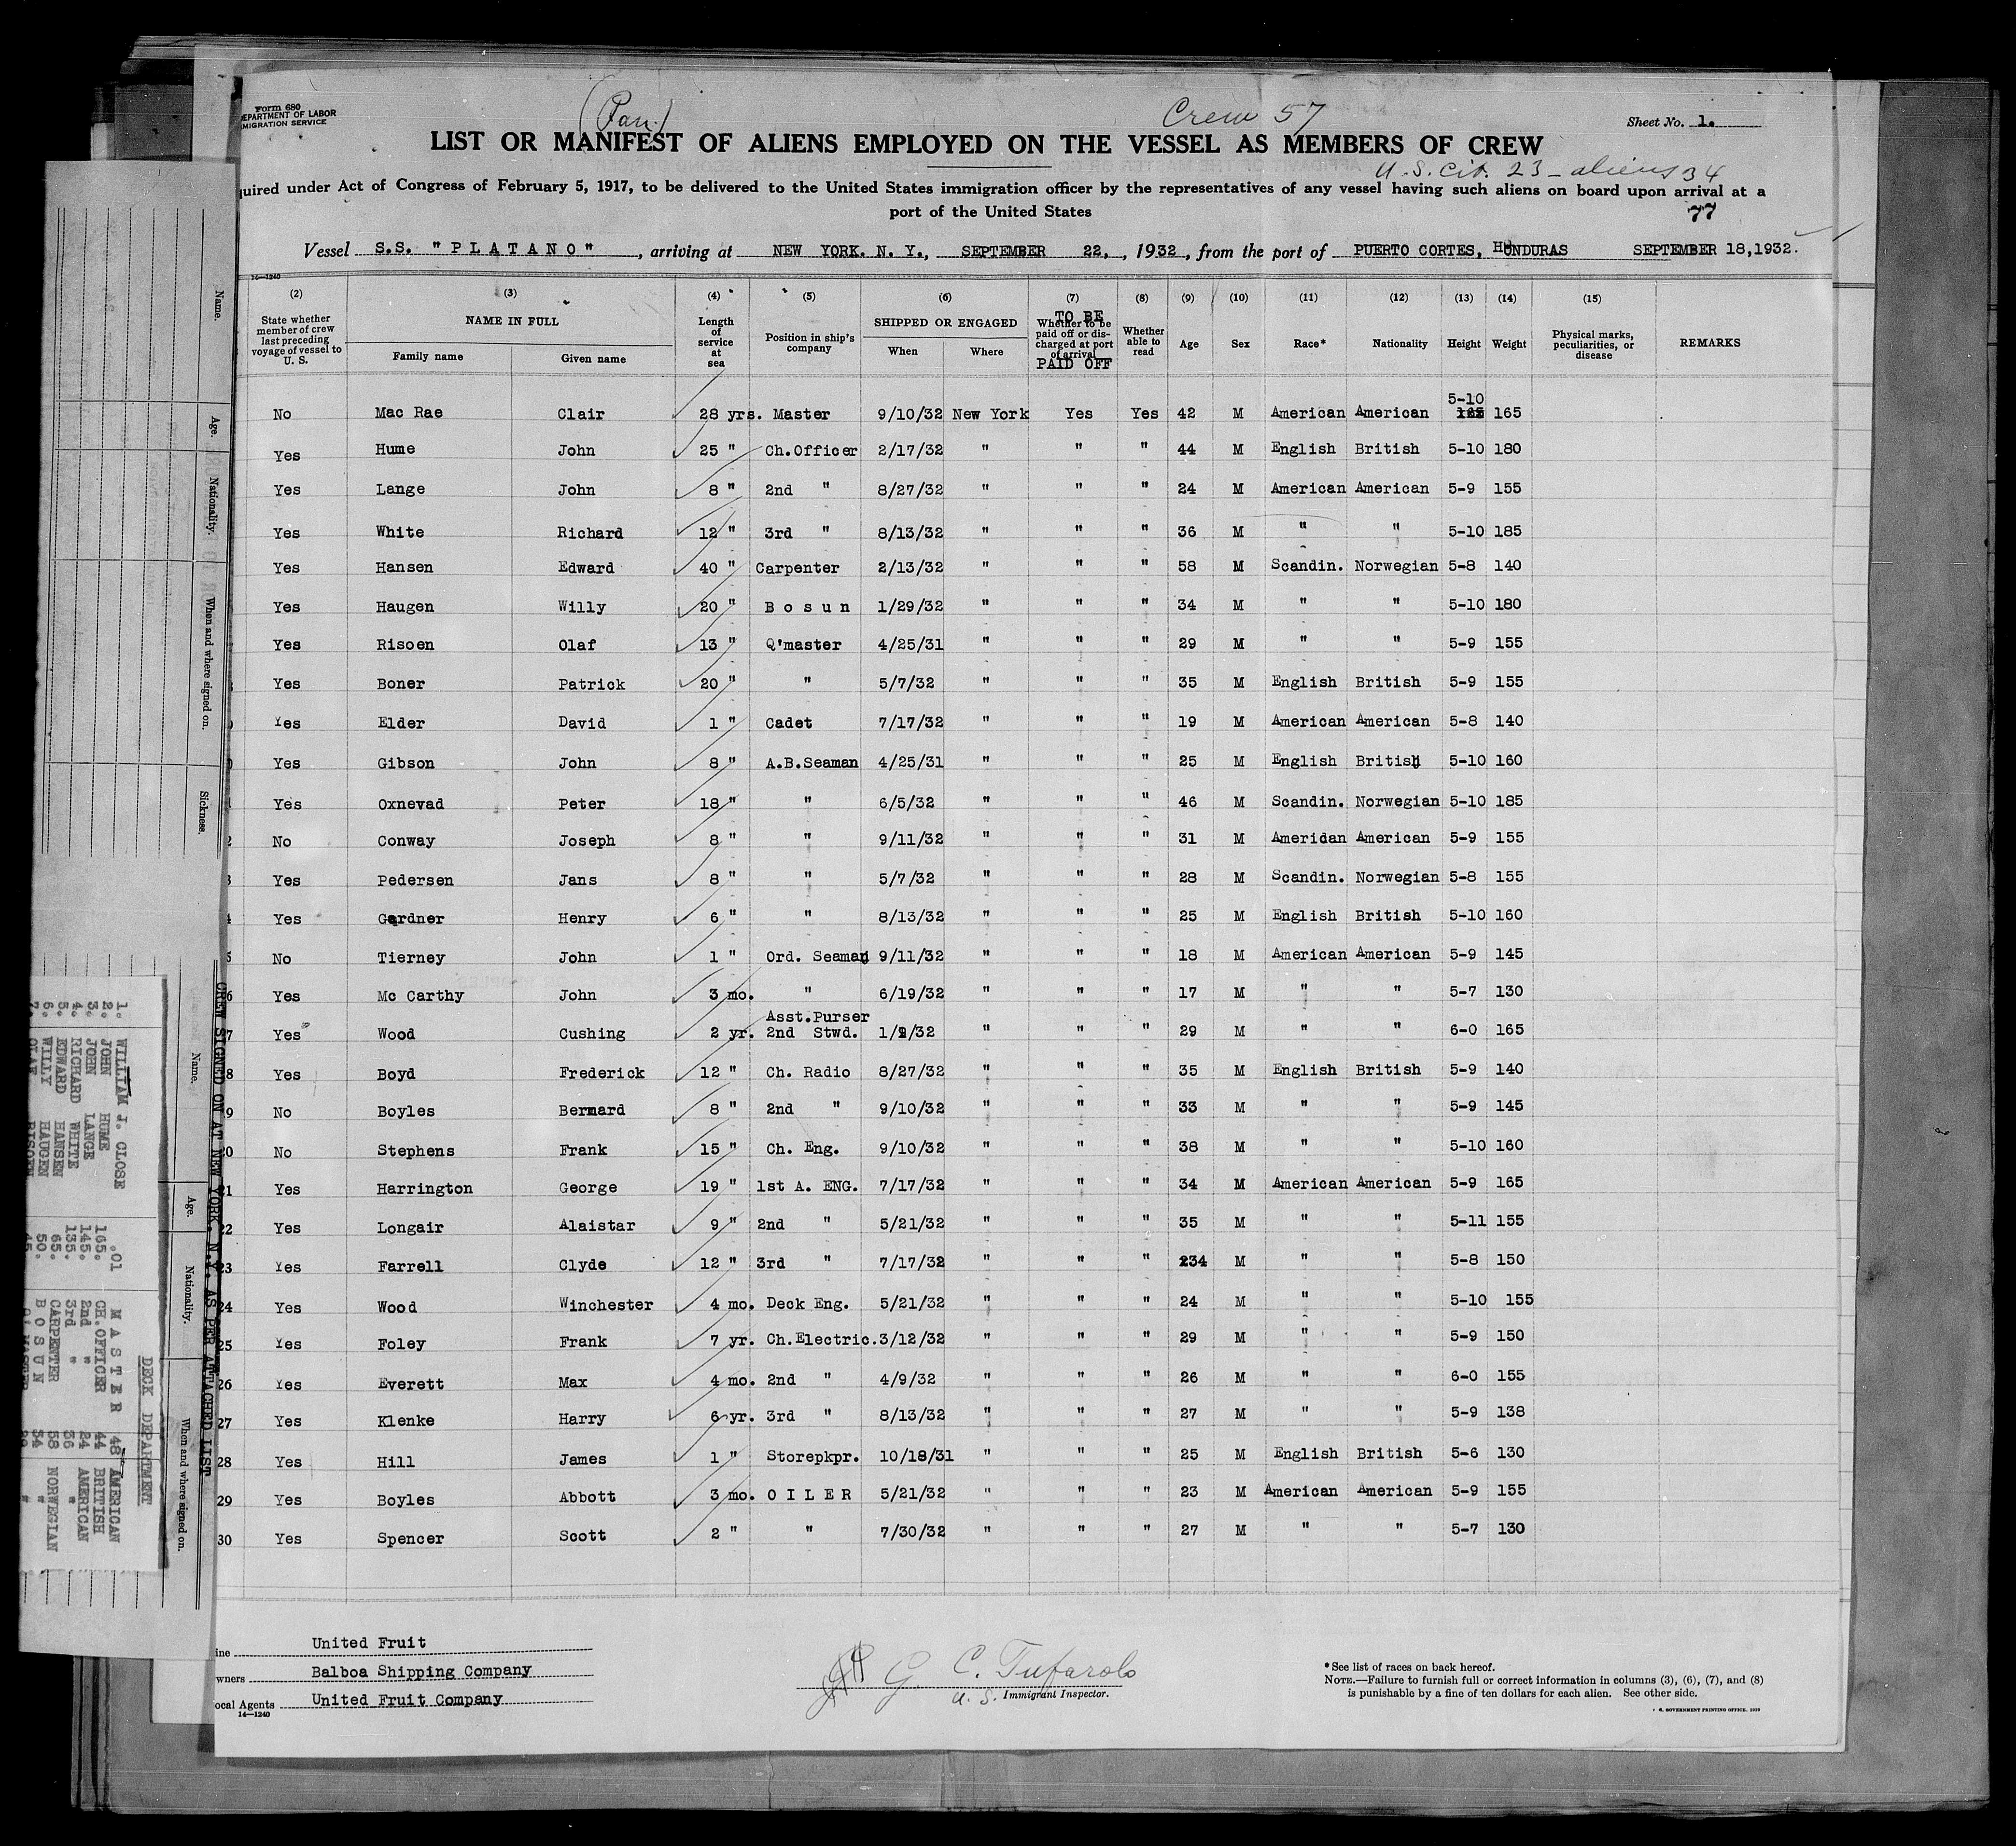 Form 680
DEPARTMENT OF LABOR
IMMIGRATION SERVICE
(Pan.)
Crew 57
Sheet No. 1.
LIST OR MANIFEST OF ALIENS EMPLOYED ON THE VESSEL AS MEMBERS OF CREW
U.S. Cit. 23 - aliens 34
quired under Act of Congress of February 5, 1917, to be delivered to the United States immigration officer by the representatives of any vessel having such aliens on board upon arrival at a
port of the United States
77
Vessel S.S. "PLATANO", arriving at NEW YORK. N. Y., SEPTEMBER 22, , 1932, from the port of PUERTO CORTES, HUNDURAS SEPTEMBER 18,1932.
14—1240
(2) (3) (4) (5) (6) (7) (8) (9) (10) (11) (12) (13) (14) (15)
State whether member of crew last preceding voyage of vessel to U. S. NAME IN FULL Family name Given name Length of service at sea Position in ship's company SHIPPED OR ENGAGED When Where TO BE Whether to be paid off or discharged at port of arrival PAID OFF Whether able to read Age Sex Race* Nationality Height Weight Physical marks, peculiarities, or disease REMARKS
No Mac Rae Clair 28 yrs. Master 9/10/32 New York Yes Yes 42 M American American 5-10 165
Yes Hume John 25 " Ch.Officer 2/17/32 " " " 44 M English British 5-10 180
Yes Lange John 8 " 2nd " 8/27/32 " " " 24 M American American 5-9 155
Yes White Richard 12 " 3rd " 8/13/32 " " " 36 M " " 5-10 185
Yes Hansen Edward 40 " Carpenter 2/13/32 " " " 58 M Scandin. Norwegian 5-8 140
Yes Haugen Willy 20 " Bosun 1/29/32 " " " 34 M " " 5-10 180
Yes Risoen Olaf 13 " Q'master 4/25/31 " " " 29 M " " 5-9 155
Yes Boner Patrick 20 " " 5/7/32 " " " 35 M English British 5-9 155
Yes Elder David 1 " Cadet 7/17/32 " " " 19 M American American 5-8 140
Yes Gibson John 8 " A.B.Seaman 4/25/31 " " " 25 M English British 5-10 160
Yes Oxnevad Peter 18 " " 6/5/32 " " " 46 M Scandin. Norwegian 5-10 185
2 No Conway Joseph 8 " " 9/11/32 " " " 31 M Ameridan American 5-9 155
3 Yes Pedersen Jans 8 " " 5/7/32 " " " 28 M Scandin. Norwegian 5-8 155
4 Yes Gardner Henry 6 " " 8/13/32 " " " 25 M English British 5-10 160
5 No Tierney John 1 " Ord. Seaman 9/11/32 " " " 18 M American American 5-9 145
6 Yes Mc Carthy John 3 mo. " 6/19/32 " " " 17 M " " 5-7 130
7 Yes Wood Cushing 2 yr. Asst.Purser 2nd Stwd. 1/2/32 " " " 29 M " " 6-0 165
8 Yes Boyd Frederick 12 " Ch. Radio 8/27/32 " " " 35 M English British 5-9 140
9 No Boyles Bernard 8 " 2nd " 9/10/32 " " " 33 M " " 5-9 145
20 No Stephens Frank 15 " Ch. Eng. 9/10/32 " " " 38 M " " 5-10 160
21 Yes Harrington George 19 " 1st A. ENG. 7/17/32 " " " 34 M American American 5-9 165
22 Yes Longair Alaistar 9 " 2nd " 5/21/32 " " " 35 M " " 5-11 155
23 Yes Farrell Clyde 12 " 3rd " 7/17/32 " " " 234 M " " 5-8 150
24 Yes Wood Winchester 4 mo. Deck Eng. 5/21/32 " " " 24 M " " 5-10 155
25 Yes Foley Frank 7 yr. Ch.Electric. 3/12/32 " " " 29 M " " 5-9 150
26 Yes Everett Max 4 mo. 2nd " 4/9/32 " " " 26 M " " 6-0 155
27 Yes Klenke Harry 6 yr. 3rd " 8/13/32 " " " 27 M " " 5-9 138
28 Yes Hill James 1 " Storepkpr. 10/18/31 " " " 25 M English British 5-6 130
29 Yes Boyles Abbott 3 mo. OILER 5/21/32 " " " 23 M American American 5-9 155
30 Yes Spencer Scott 2 " " 7/30/32 " " " 27 M " " 5-7 130
ine United Fruit
wners Balboa Shipping Company
ocal Agents United Fruit Company
14—1240
G. C. Tufarolo
U. S. Immigrant Inspector.
*See list of races on back hereof.
NOTE.—Failure to furnish full or correct information in columns (3), (6), (7), and (8)
is punishable by a fine of ten dollars for each alien. See other side.
GOVERNMENT PRINTING OFFICE
Name. Age. Nationality. When and where signed on. Sickness.
CREW SIGNED ON AT NEW YORK. N.Y. AS PER ATTACHED LIST
Name. Age. Nationality. When and where signed on.
DECK DEPARTMENT
1. WILLIAM J. CLOSE .01 MASTER 48 AMERICAN
2. JOHN HUME 165. CH.OFFICER 44 BRITISH
3. JOHN LANGE 145. 2nd " 24 AMERICAN
4. RICHARD WHITE 135. 3rd " 36 "
5. EDWARD HANSEN 65. CARPENTER 58 NORWEGIAN
6. WILLY HAUGEN 50. BOSUN 34 "
7. OLAF RISOEN